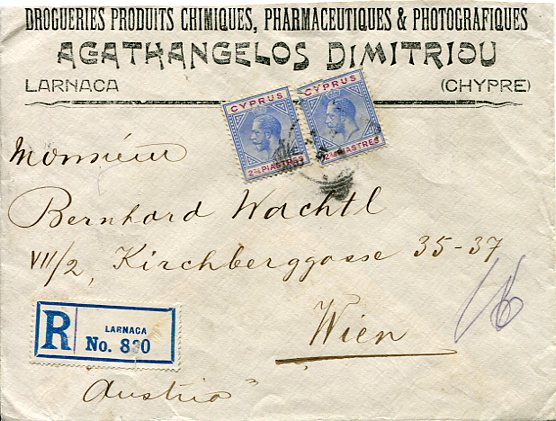 DROGUERIES PRODUITS CHIMIQUES, PHARMACEUTIQUES & PHOTOGRAFIQUES
AGATHANGELOS DIMITRIOU
LARNACA (CHYPRE)
CYPRUS CYPRUS
2¾ PIASTRES 2¾ PIASTRES
Monsieur
Bernhard Wachtl
VII/2, Kirchberggasse 35-37
Wien
R LARNACA
No. 830
"Austria"